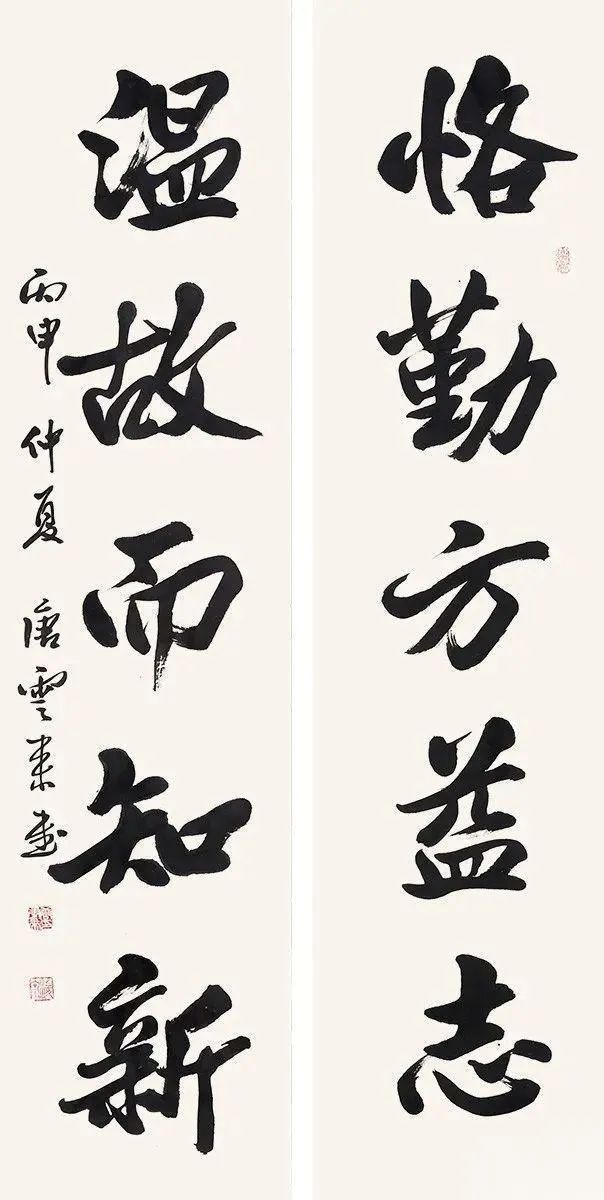 恪勤方益志
溫故而知新
丙申仲夏 唐雲来書